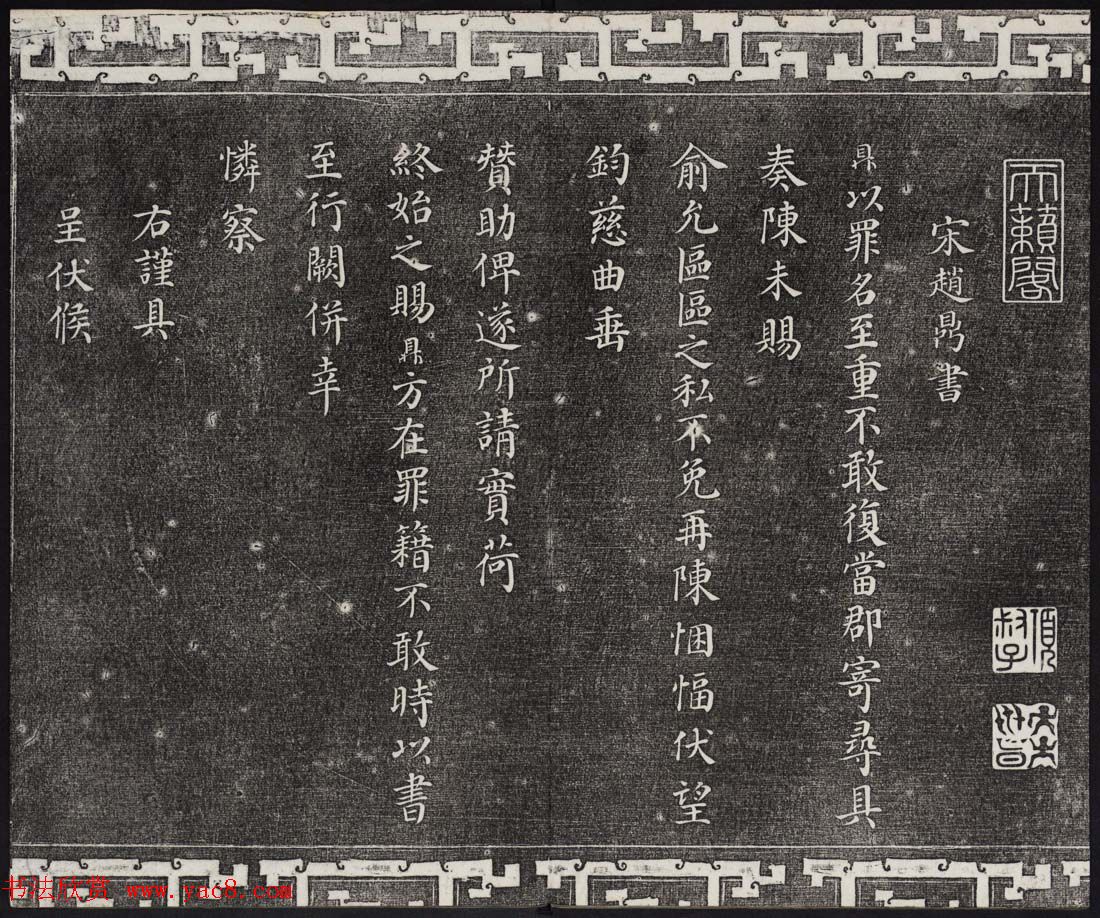 天籟閣
宋趙鼎書
鼎以罪名至重不敢復當郡寄尋具
奏陳未賜
俞允區區之私不免再陳悃愊伏望
鈞慈曲垂
贊助俾遂所請實荷
終始之賜鼎方在罪籍不敢時以書
至行闕併幸
憐察
右謹具
呈伏候
书法欣赏 www.yac8.com